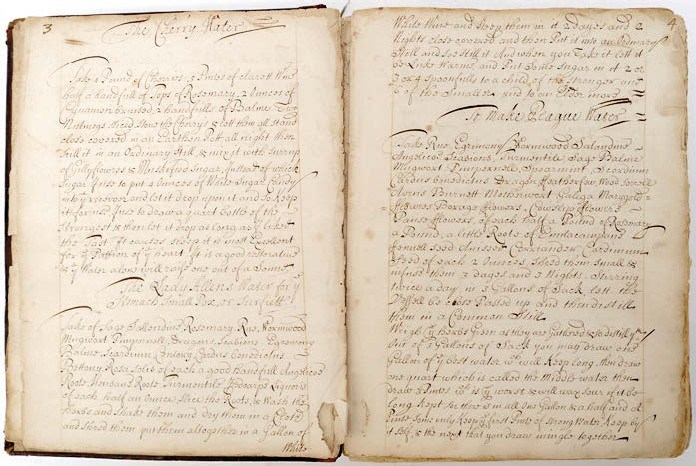 3
The Cherry Water
Take 4 Pound of Cherres, 3 Pintes of claret Wine
half a handfull of Tops of Rosemary, 2 ounces of
Cynamon brused, 2 handfulls of Balme Two
Nutmegs sliced, Stone the Cherys & lett them all stand
close covered in an Earthen Pott all night then
still it in an Ordinary Still, & mix it with surrup
of Gillyflowers & Muskefied Sugar, Instead of which
Sugar I use to put 4 ounces of White Sugar Candy
in y receiver and let it drop upon it and so keep
it for use, I use to draw a quart bottle of the
Strongest & then let it drop as long as I liked
the Tast It causes sleep & is most Excellent
for y Passion of y heart It is a good restorative
& y Water alone will rase one out of a Sound
The Lady Allens Water for y
Stomach Small Pox, or Surfiett
Take of Sage Sallendine Rosemary Rue, Wormwood
Mugwort Pimpernell Dragons Scabious Egremony
Balme Scordium Centory Cardus benedictus
Bettony Rosa Solis of each a good handfull Angelico
Roots Roots Turmentile Liquoris
of each half an Ounce, slice the Roots, & Wash the
herbs and shake them and dry them in a Cloth
and shred them put them altogether in a Gallon of
White
4
White Wine and Steep them in it 2 dayes and 2
Nights close covered and then Put it into an Ordinary
Still and so Still it And when you Take it lett it
be Luke Warme, and Put some Sugar in it 2 or
3 or 4 Spoonfulls to a child of the Stronger and
6 of the Smaller and to an Elder more
To Make Plague Water
Take Rue Egrimony Wormwood Salandine
Angelico Scabious, Turmontile Sage Balme
Mugwort Pimpernell Spearmint Scordium
Cardus benedictus Dragon Featherfew Wood Sorrell
Burnett Motherwort Marigold
flowers Borage flowers Cowslip flowers
Pansie flowers of each half a Pound of Rosemary
a Pound, a little Roots of Enulacampane
fennell Seed Coriander Cardimum
Seed of each 2 Ounces, Shred them small &
infuse them 3 dayes and 3 Nights Stirring
twice a day in 3 Gallons of Sack lett the
Vessell be close Pasted up And then distill
them in a Common Still
Weigh y herbs green as they are Gathered
Out of 3 Gallons of Sack you may draw one
Gallon of y best water w will keep long, then draw
one quart which is called the Middle water then
draw 3 Pintes w is y worst & will sour if it be
Long Kept So there is in all one Gallon & a half and a
Pinte, some only keep y first Pints of strong Water by
it self, & the next that you draw mingle together